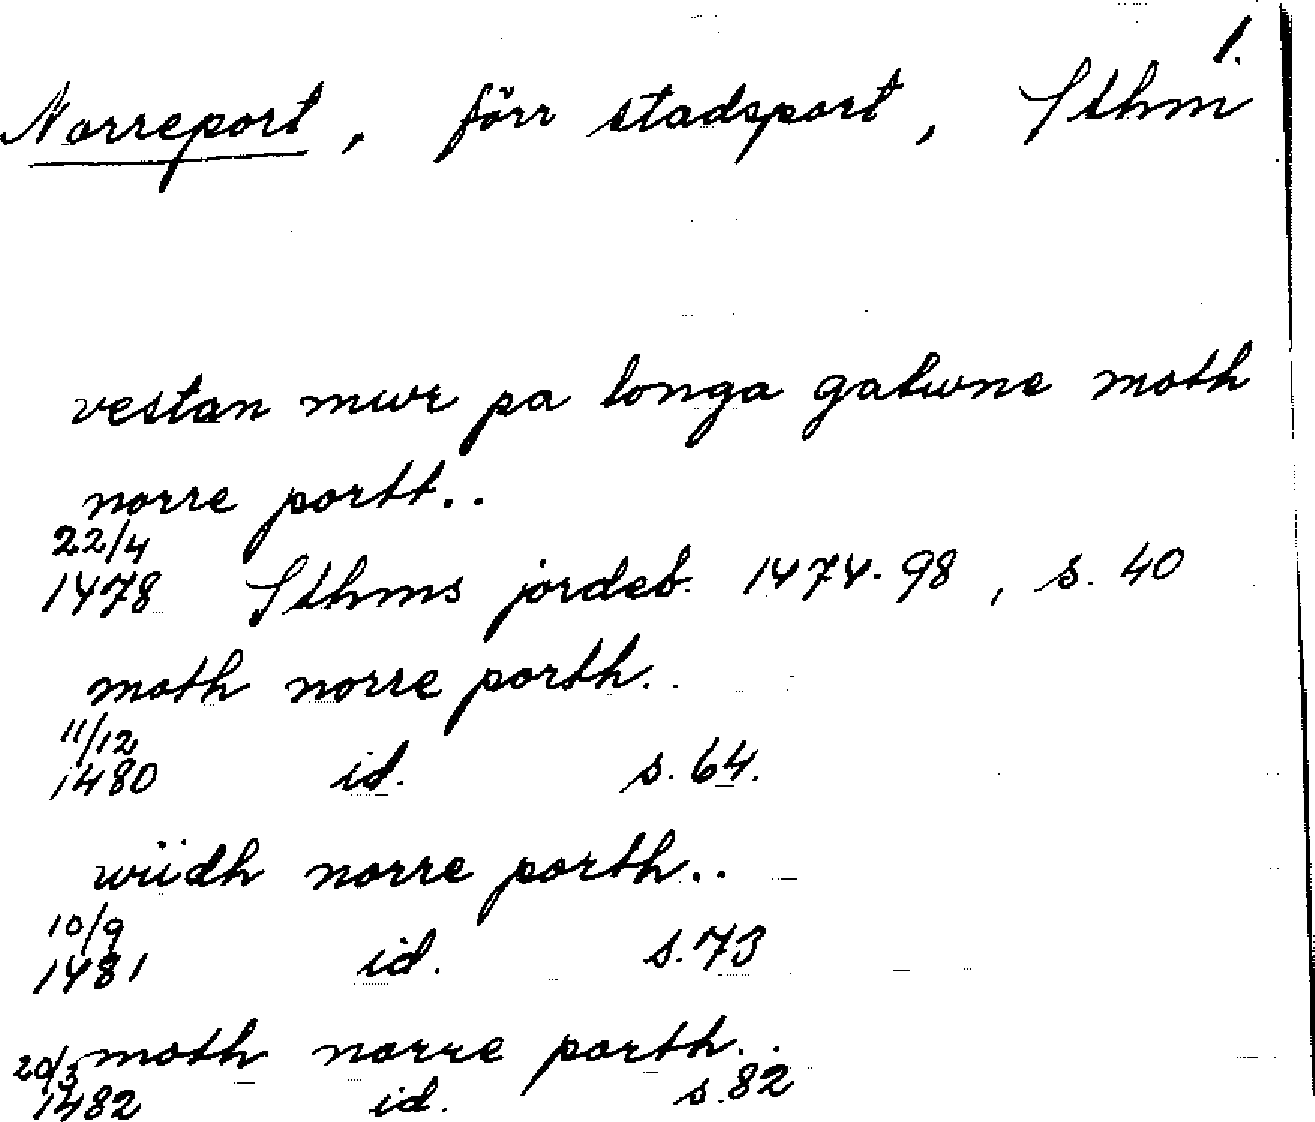 1.
Norreport, förr stadsport, Sthm
vestan mwr pa longa gatwne moth
norre portt..
22/4
1478 Sthms jordeb. 1474-98, s. 40
moth norre porth..
11/12
1480 id. s. 64.
wiidh norre porth..
10/9
1481 id. s. 73
20/3 moth norre porth..
1482 id. s. 82